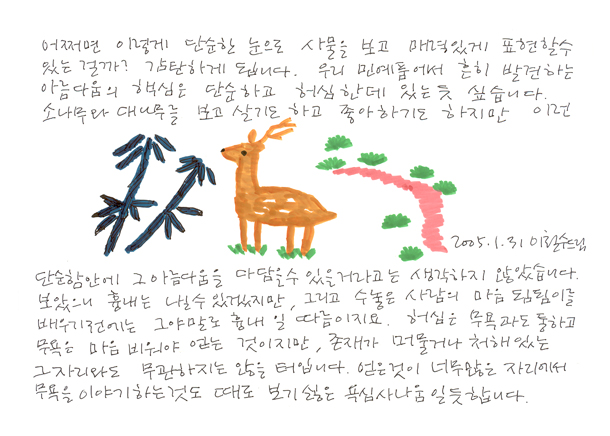 어쩌면 이렇게 단순한 눈으로 사물을 보고 매력있게 표현할수
있는 걸까? 감탄하게 됩니다. 우리 민예품에서 흔히 발견하는
아름다움의 핵심은 단순하고 허심한데 있는듯 싶습니다.
소나무와 대나무를 보고 살기도 하고 좋아하기도 하지만 이런
2005.1.31 이철수드림
단순함안에 그아름다움을 다담을수 있을거라고는 생각하지 않았습니다.
보았으니 흉내는 나낼수있겠지만, 그리고 수놓은 사람의 마음 됨됨이를
배우기전에는 그야말로 흉내 일 따름이지요. 허심은 무욕과도 통하고
무욕은 마음 비워야 얻는 것이지만, 존재가 머물거나 처해있는
그자리와도 무관하지는 않을 터입니다. 얻은것이 너무많은 자리에서
무욕을 이야기하는것도 때로 보기싫은 욕심사나움 일듯합니다.